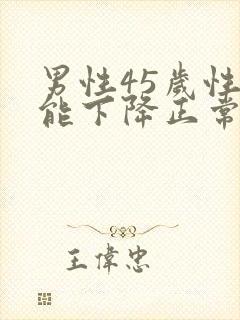 男性45歲性
能下降正常
王偉忠